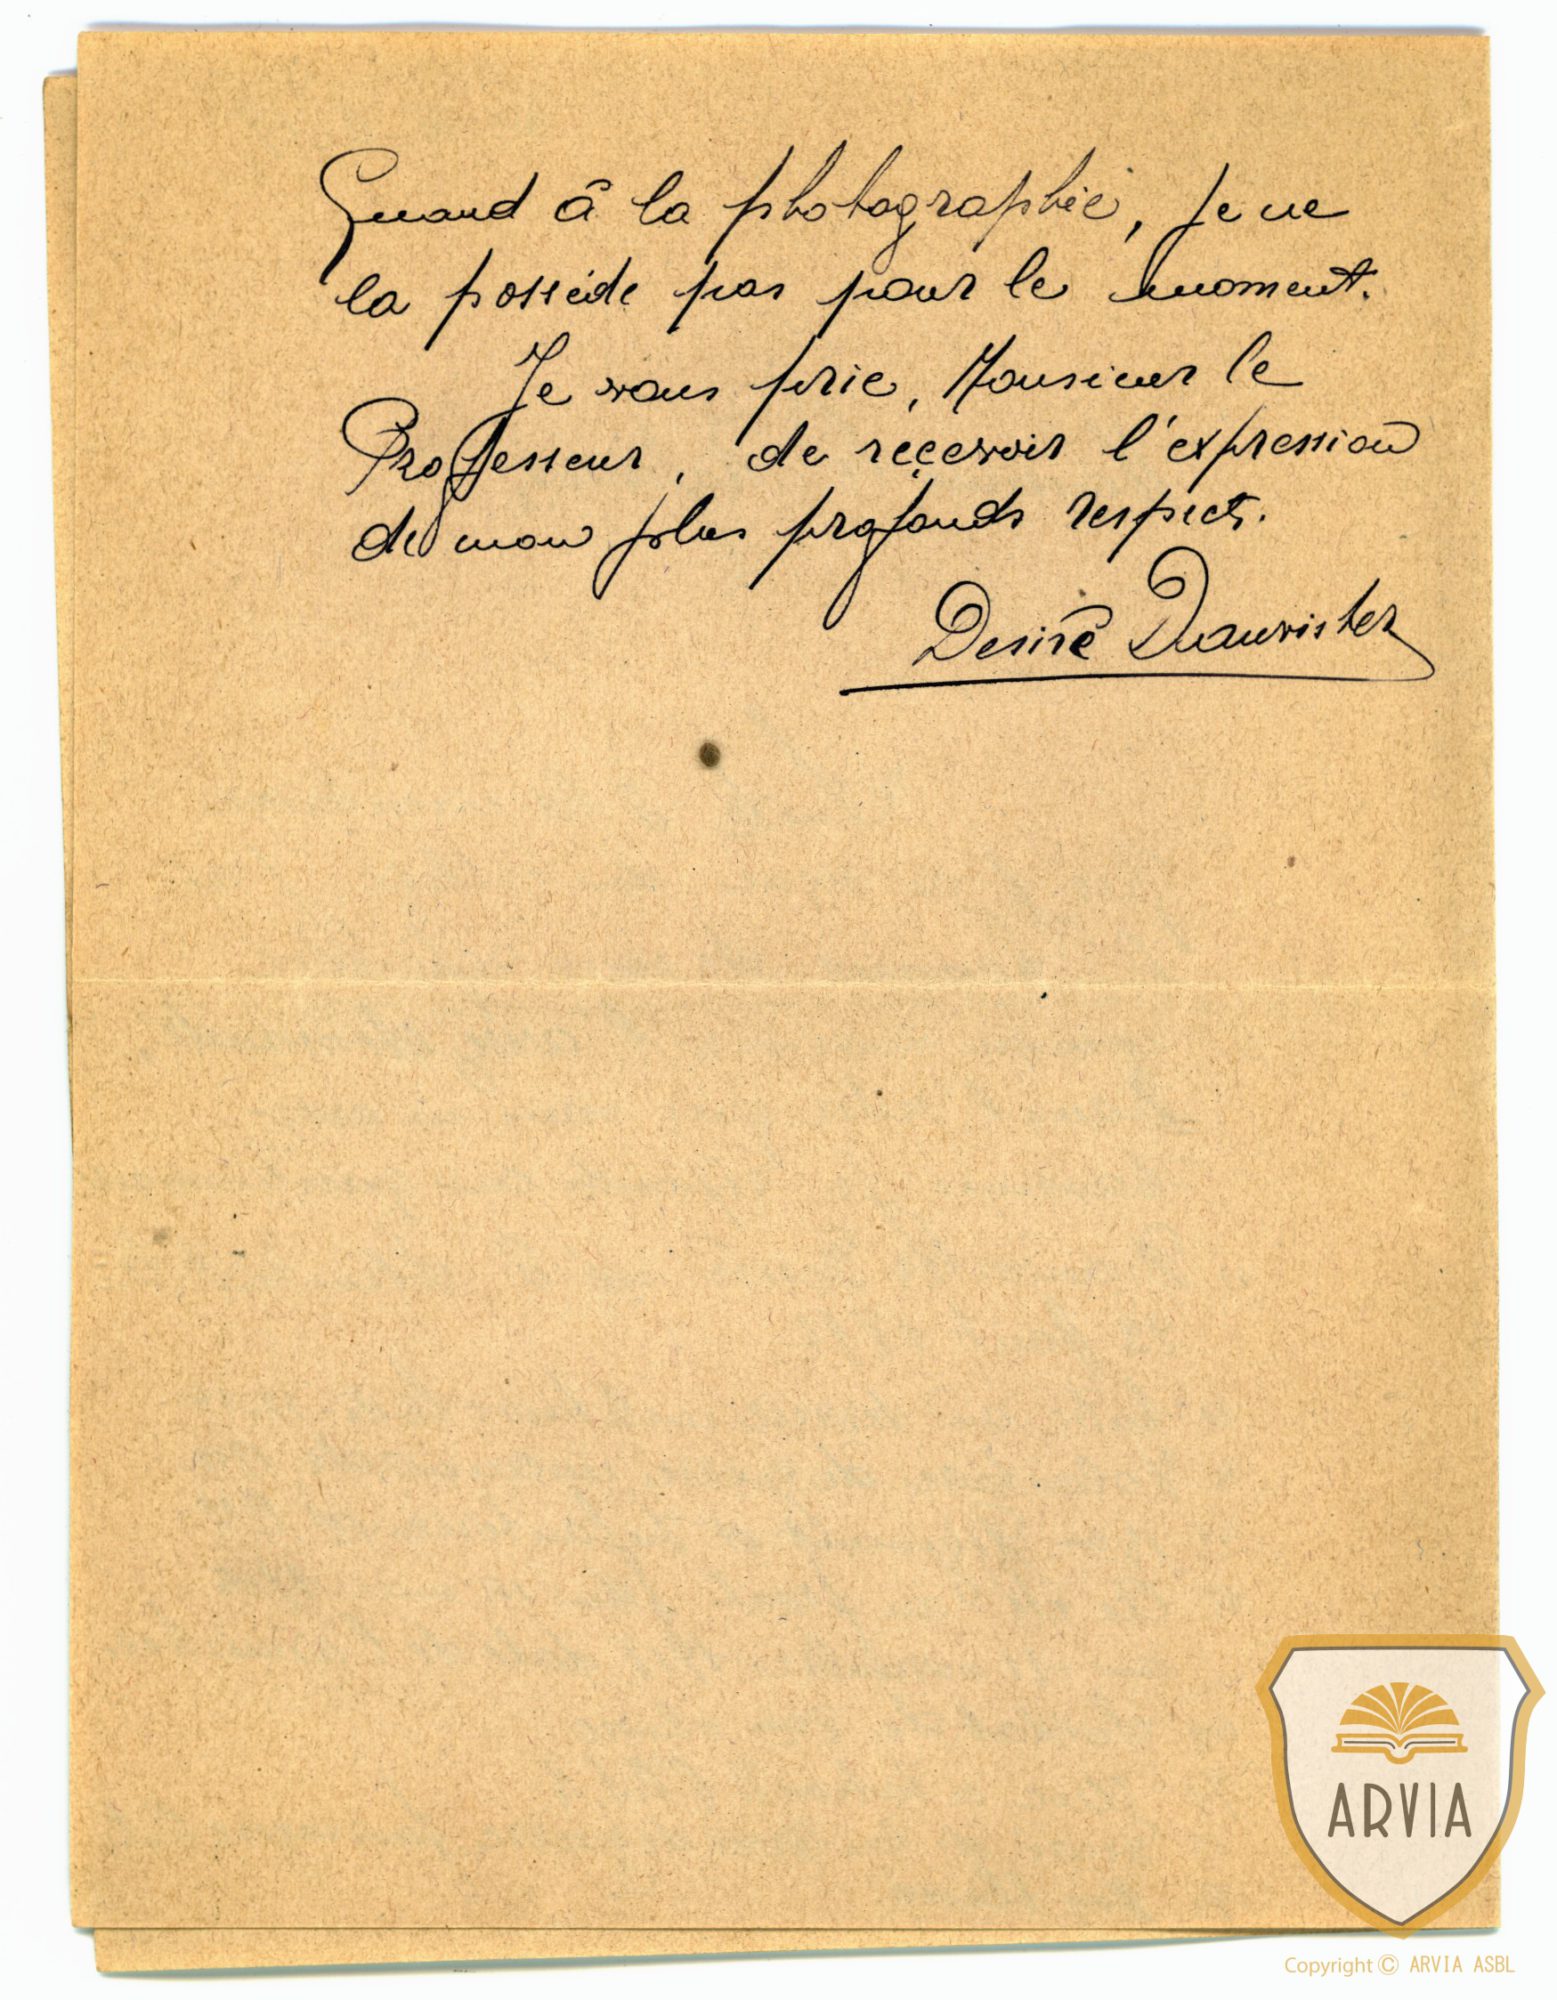 Quand à la photographie, je ne
la possède pas pour le moment.
Je vous prie, Monsieur le
Professeur, de reçevoir l'expression
de mon plus profonds respects.
Desiré Dauvister
ARVIA
Copyright © ARVIA ASBL